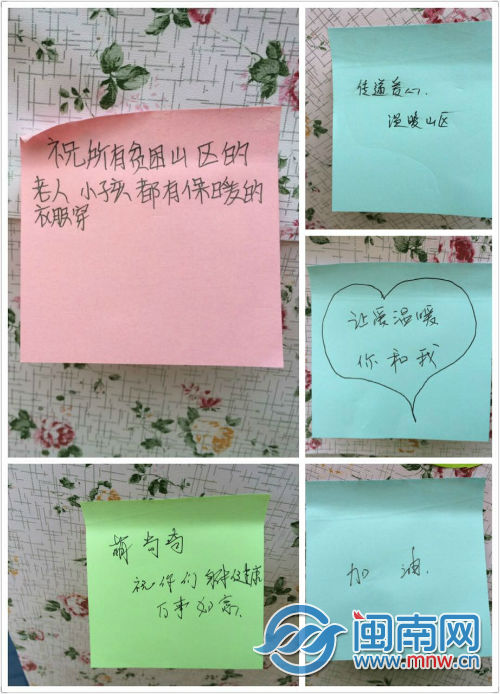 祝所有贫困山区的
老人 小孩 都有保暖的
衣服穿
传递爱心
温暖山区
让爱温暖
你和我
祝你们身体健康
万事如意.
加油.
闽南网
www.mnw.cn